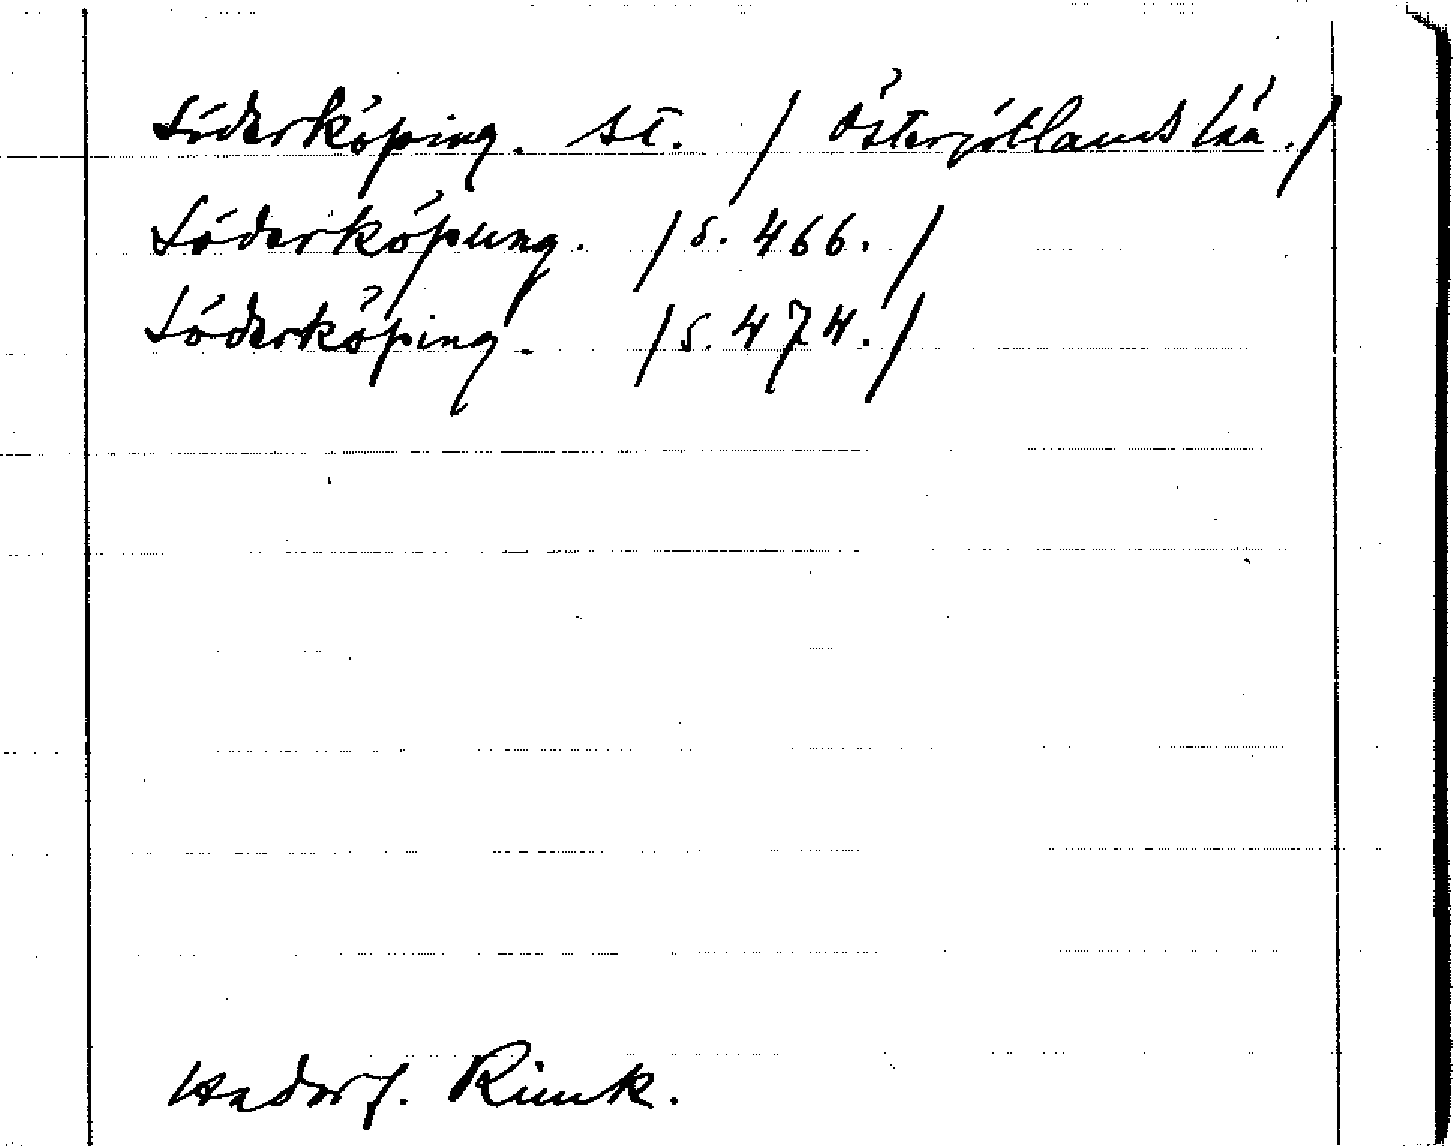 Söderköping. st. / Östergötlands län. /
Söderköpung. / s. 466. /
Söderköping. / s. 474. /
Hadorf. Rimk.